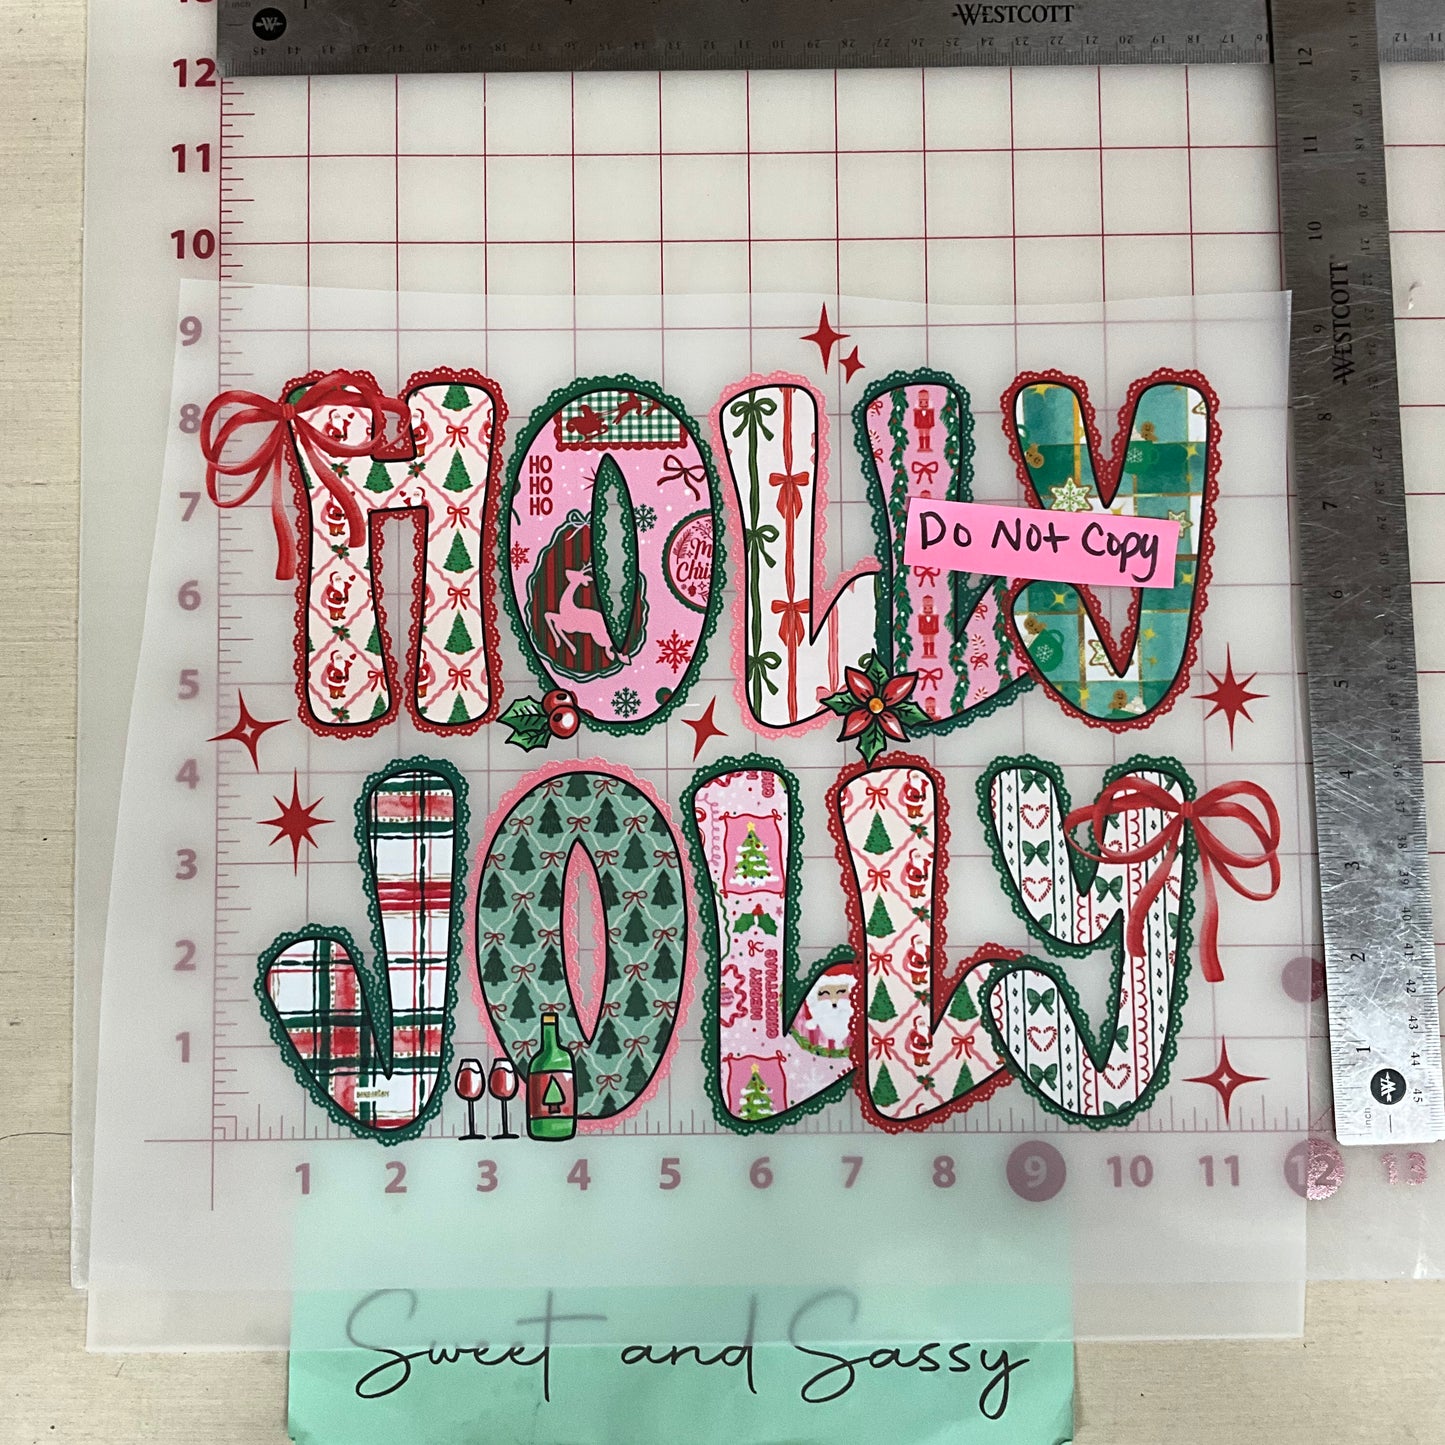 WESTCOTT
12
11
10
9
8
7
6
5
4
3
2
1
HOLLY
HO
HO
HO
Do Not Copy
WESTCOTT
JOLLY
MERRY
CHRISTMAS
1 2 3 4 5 6 7 8 9 10 11 12 13
Sweet and Sassy